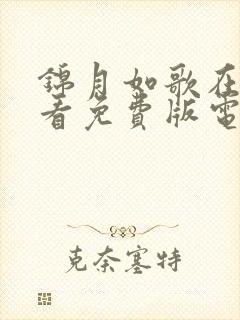 錦月如歌在
看免費版電
克奈塞特